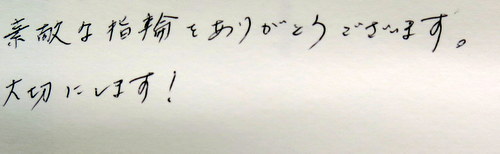 素敵な指輪をありがとうございます。
大切にします!